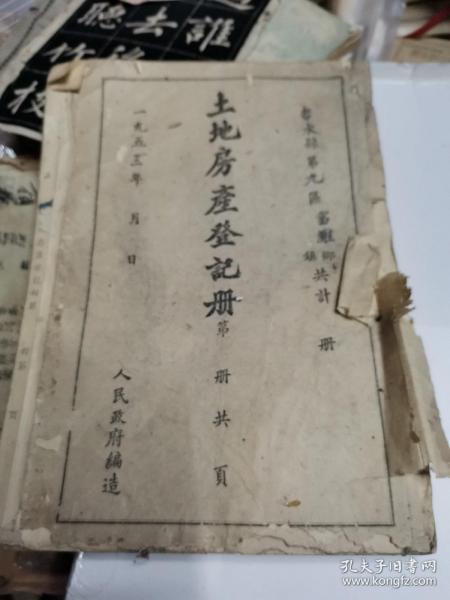 縣第九區富
鄉
鎮
共計 册
土地房產登記册
第 册共 頁
一九五三年 月 日
人民政府編造
聽去誰
竹
枝
孔夫子旧书网
www.kongfz.com